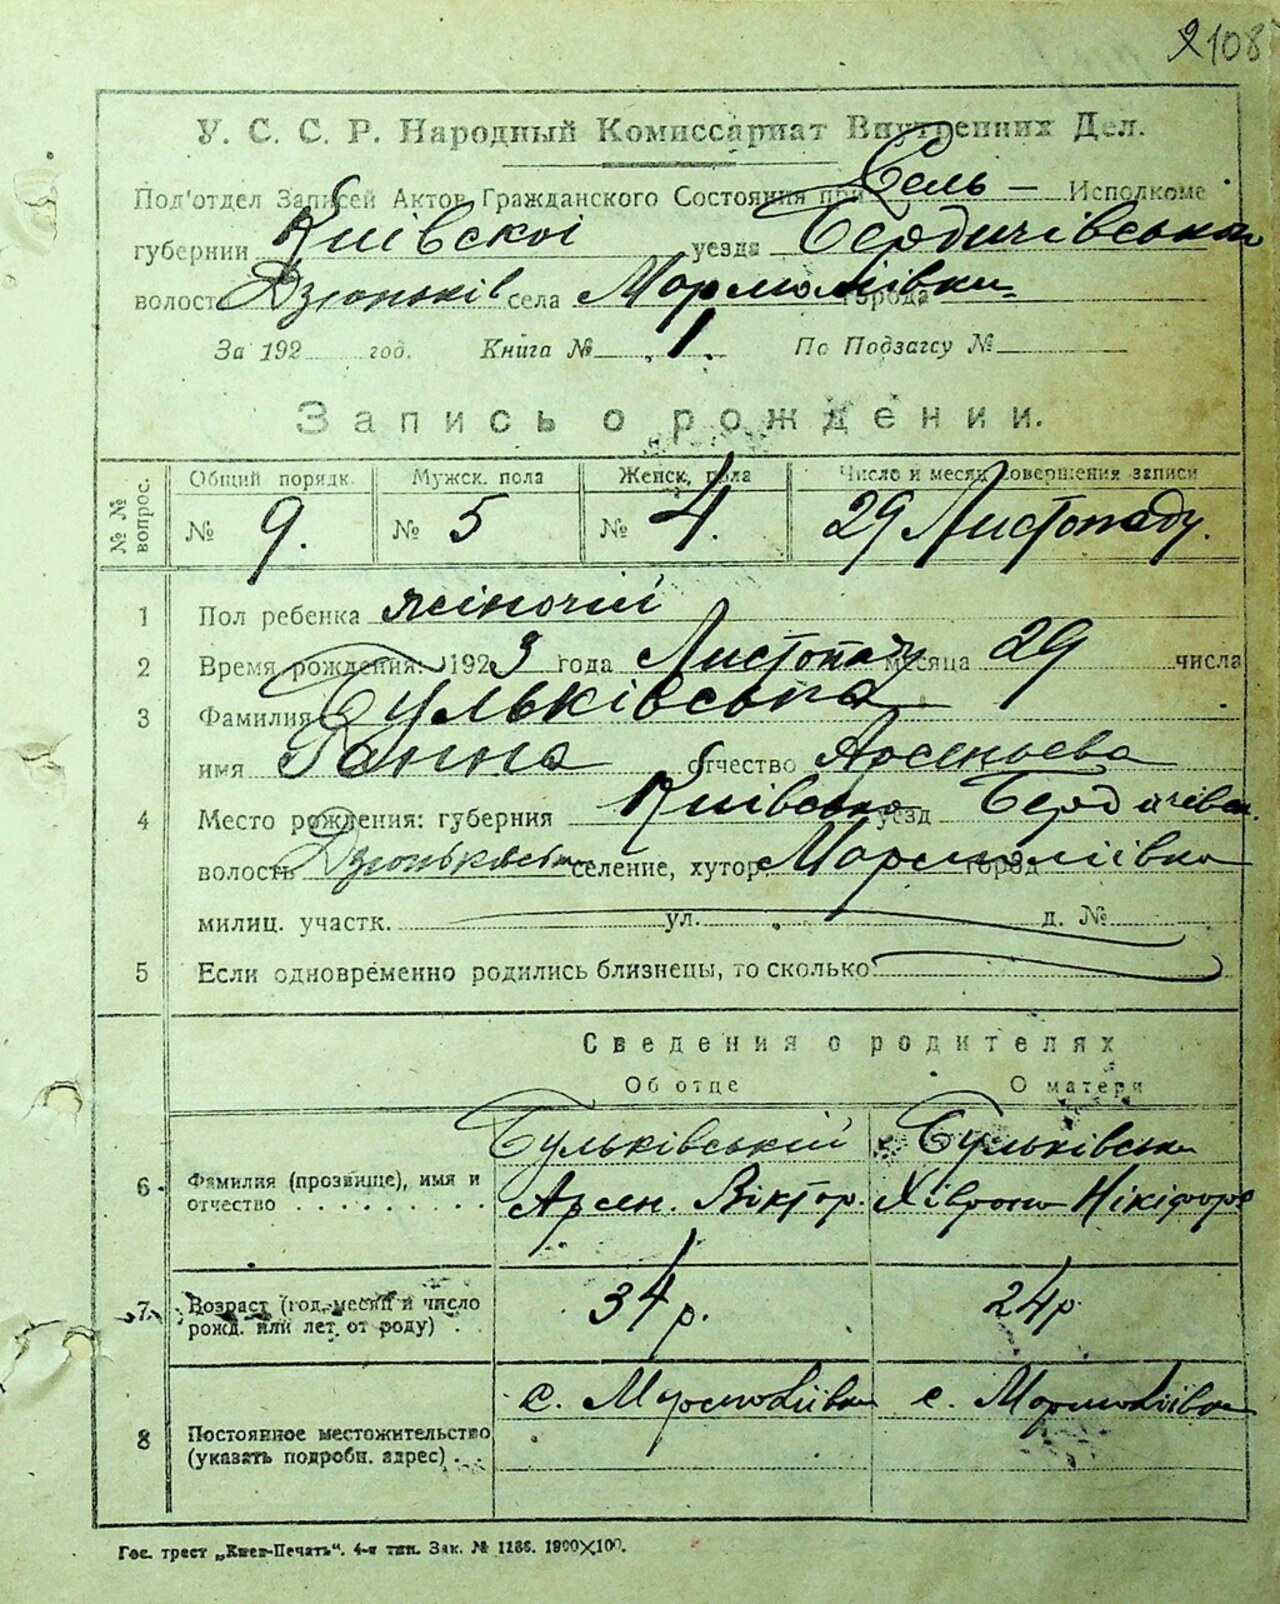 2108
У. С. С. Р. Народный Комиссариат Внутренних Дел.
Под'отдел Записей Актов Гражданского Состояния при Сель — Исполкоме
губернии Київскої уезда Бердичівського
волости Дзюньків села Мармоліївки города
За 192 год. Книга № 1. По Подзагсу №
Запись о рождении.
№ № вопрос. Общий порядк. Мужск. пола Женск. пола Число и месяц совершения записи
№ 9. № 5 № 4. 29 Листопаду.
1 Пол ребенка жіночій
2 Время рождения: 1923 года Листопаду месяца 29 числа
3 Фамилия Бульківська
имя Ганна отчество Арсеньева
4 Место рождения: губерния Київська уезд Бердичівськ.
волость Дзюньківськ селение, хутор Мармоліївка город
милиц. участк. ул. д. №
5 Если одновременно родились близнецы, то сколько
Сведения о родителях
Об отце О матери
Бульківській Бульківська
6 Фамилия (прозвище), имя и отчество Арсен. Віктор. Хіврона Нікіфоров
7 Возраст (год, месяц и число рожд. или лет от роду) 34 р. 24 р.
с. Мармоліївка с. Мармоліївка
8 Постоянное местожительство (указать подробн. адрес)
Гос. трест „Киев-Печать“. 4-я тип. Зак. № 1186. 1900✕100.